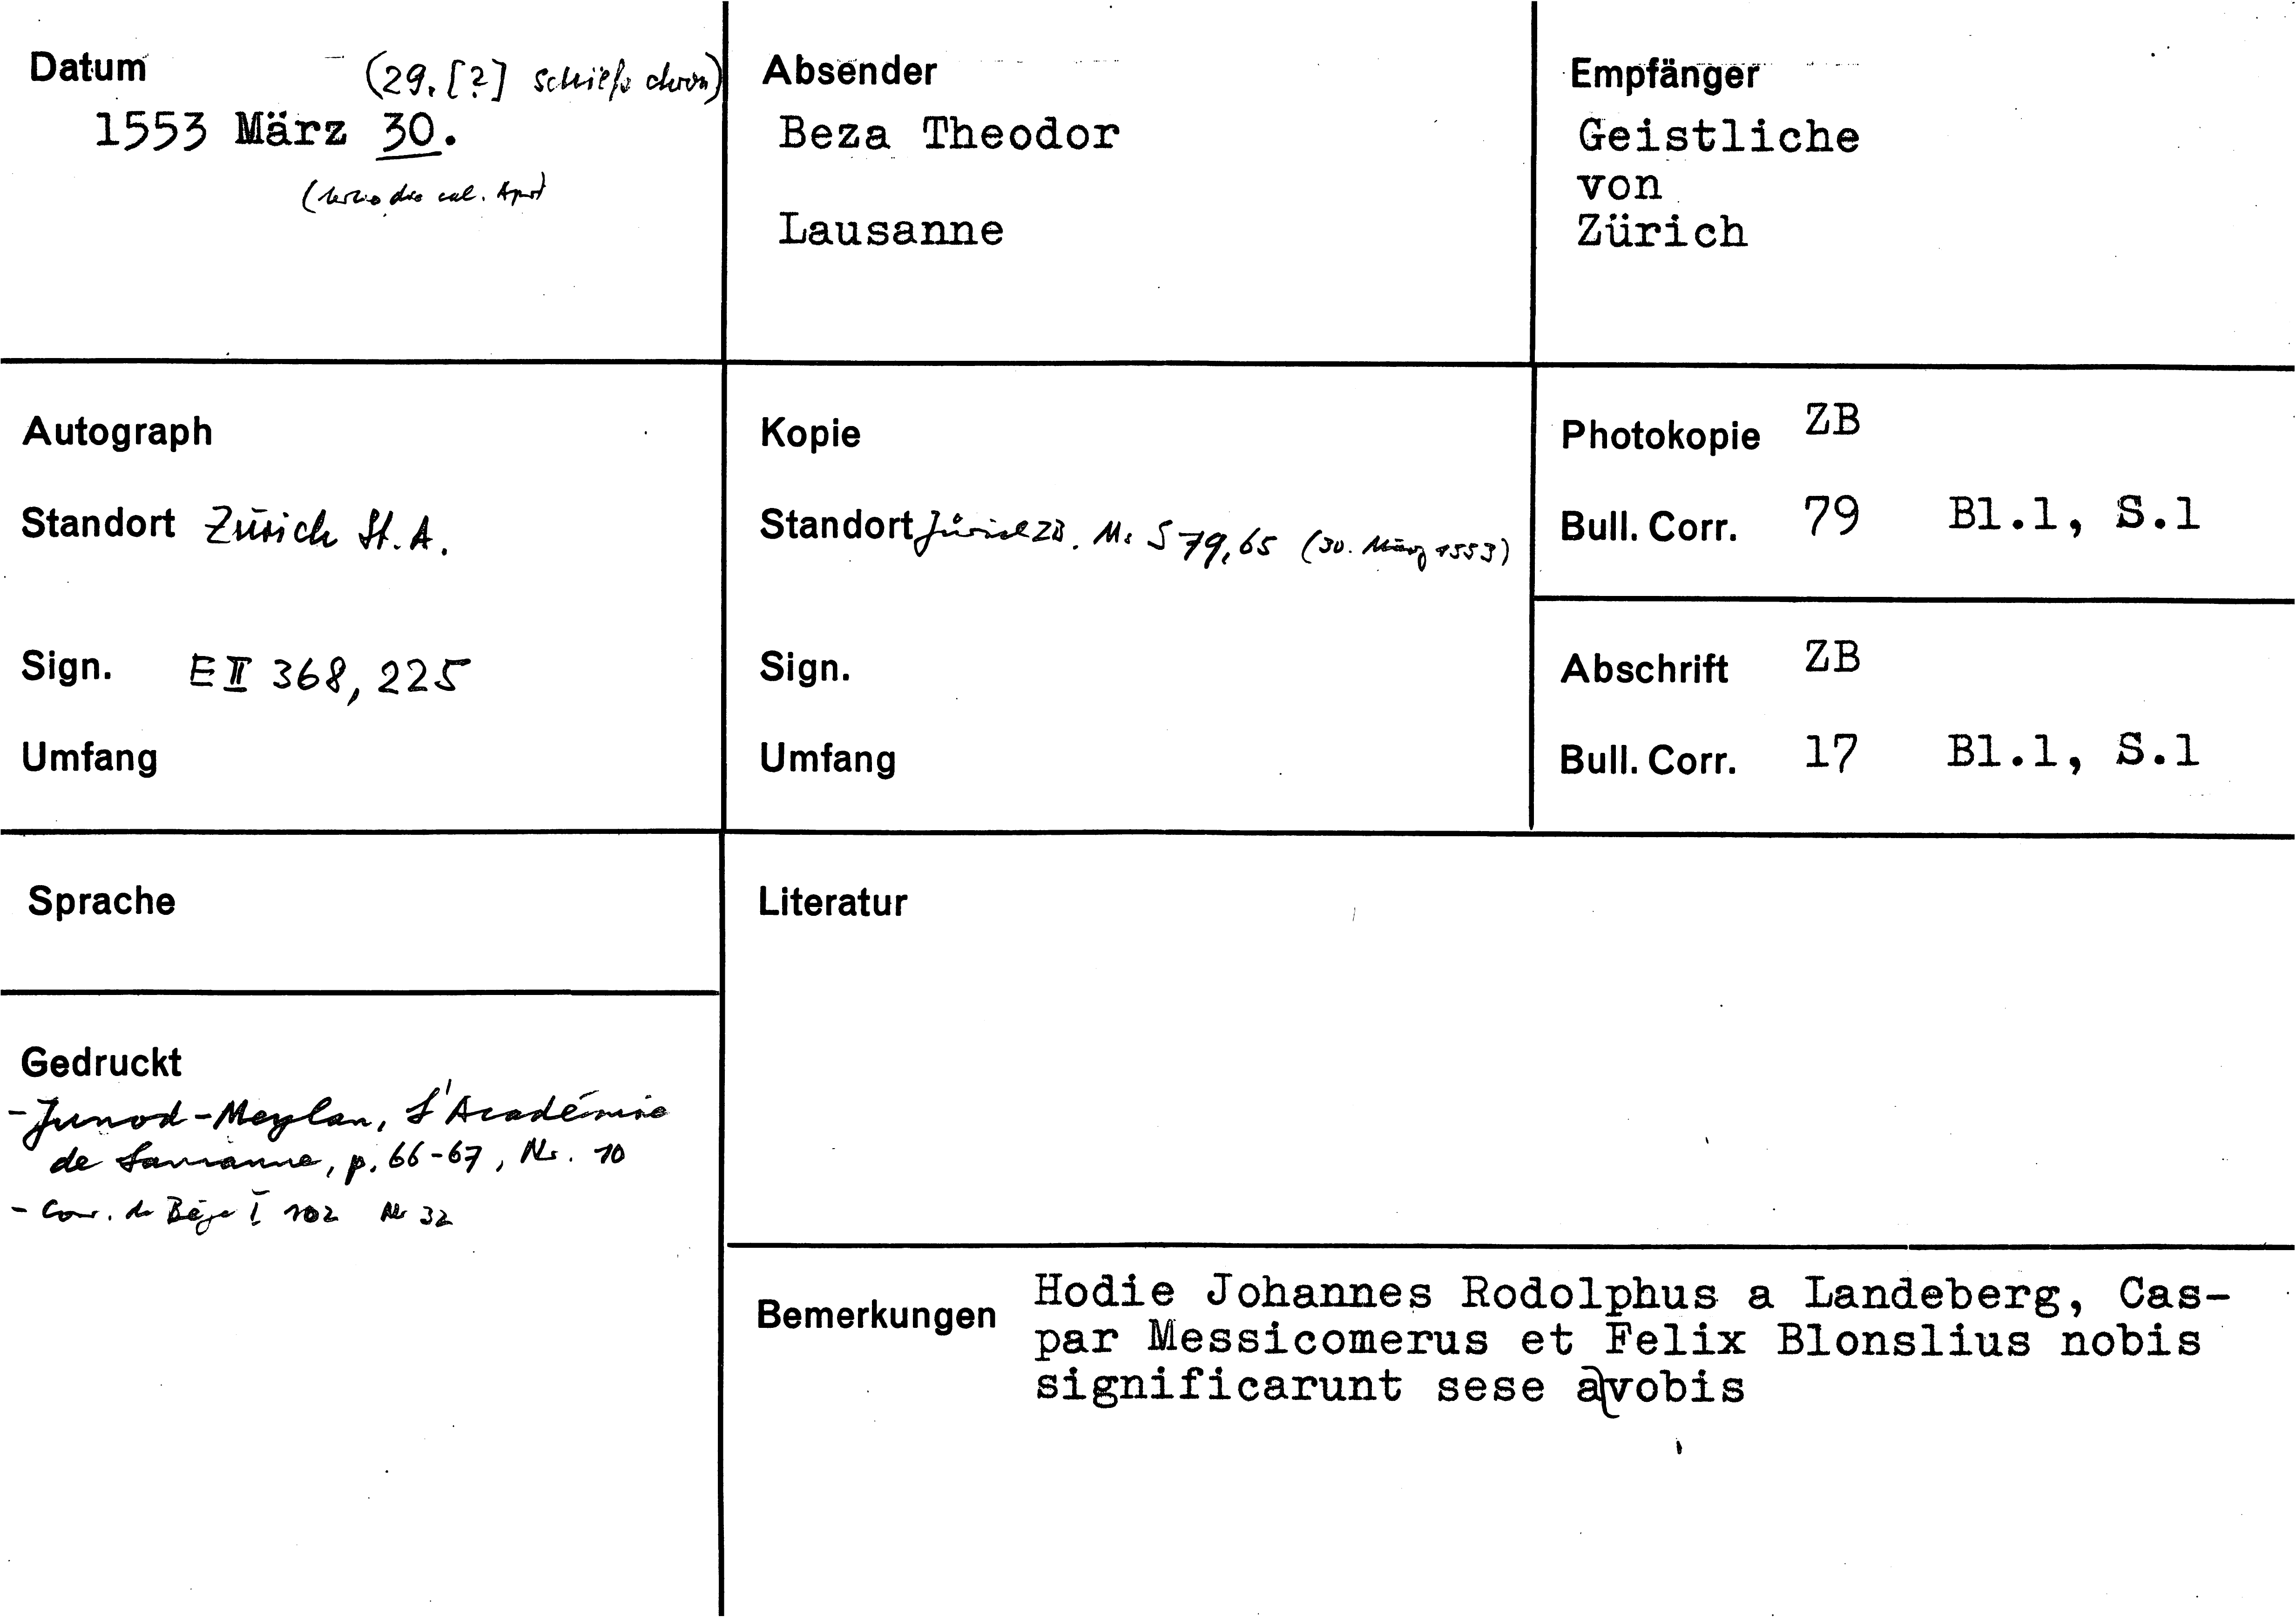 Datum
(29. [?] Schieß chron)
1553 März 30.
(tertio die cal. Apr)
Absender
Beza Theodor
Lausanne
Empfänger
Geistliche
von
Zürich
Autograph
Standort Zürich St. A.
Sign. E II 368, 225
Umfang
Kopie
Standort Zürich ZB. Ms S 79, 65 (30. März 1553)
Sign.
Umfang
Photokopie ZB
Bull. Corr. 79 Bl.1, S.1
Abschrift ZB
Bull. Corr. 17 Bl.1, S.1
Sprache
Gedruckt
- Junod-Meylan, L'Académie
de Lausanne, p. 66-67, Nr. 10
- Corr. de Bèze I 102 Nr 32
Literatur
Bemerkungen
Hodie Johannes Rodolphus a Landeberg, Cas-
par Messicomerus et Felix Blonslius nobis
significarunt sese a vobis